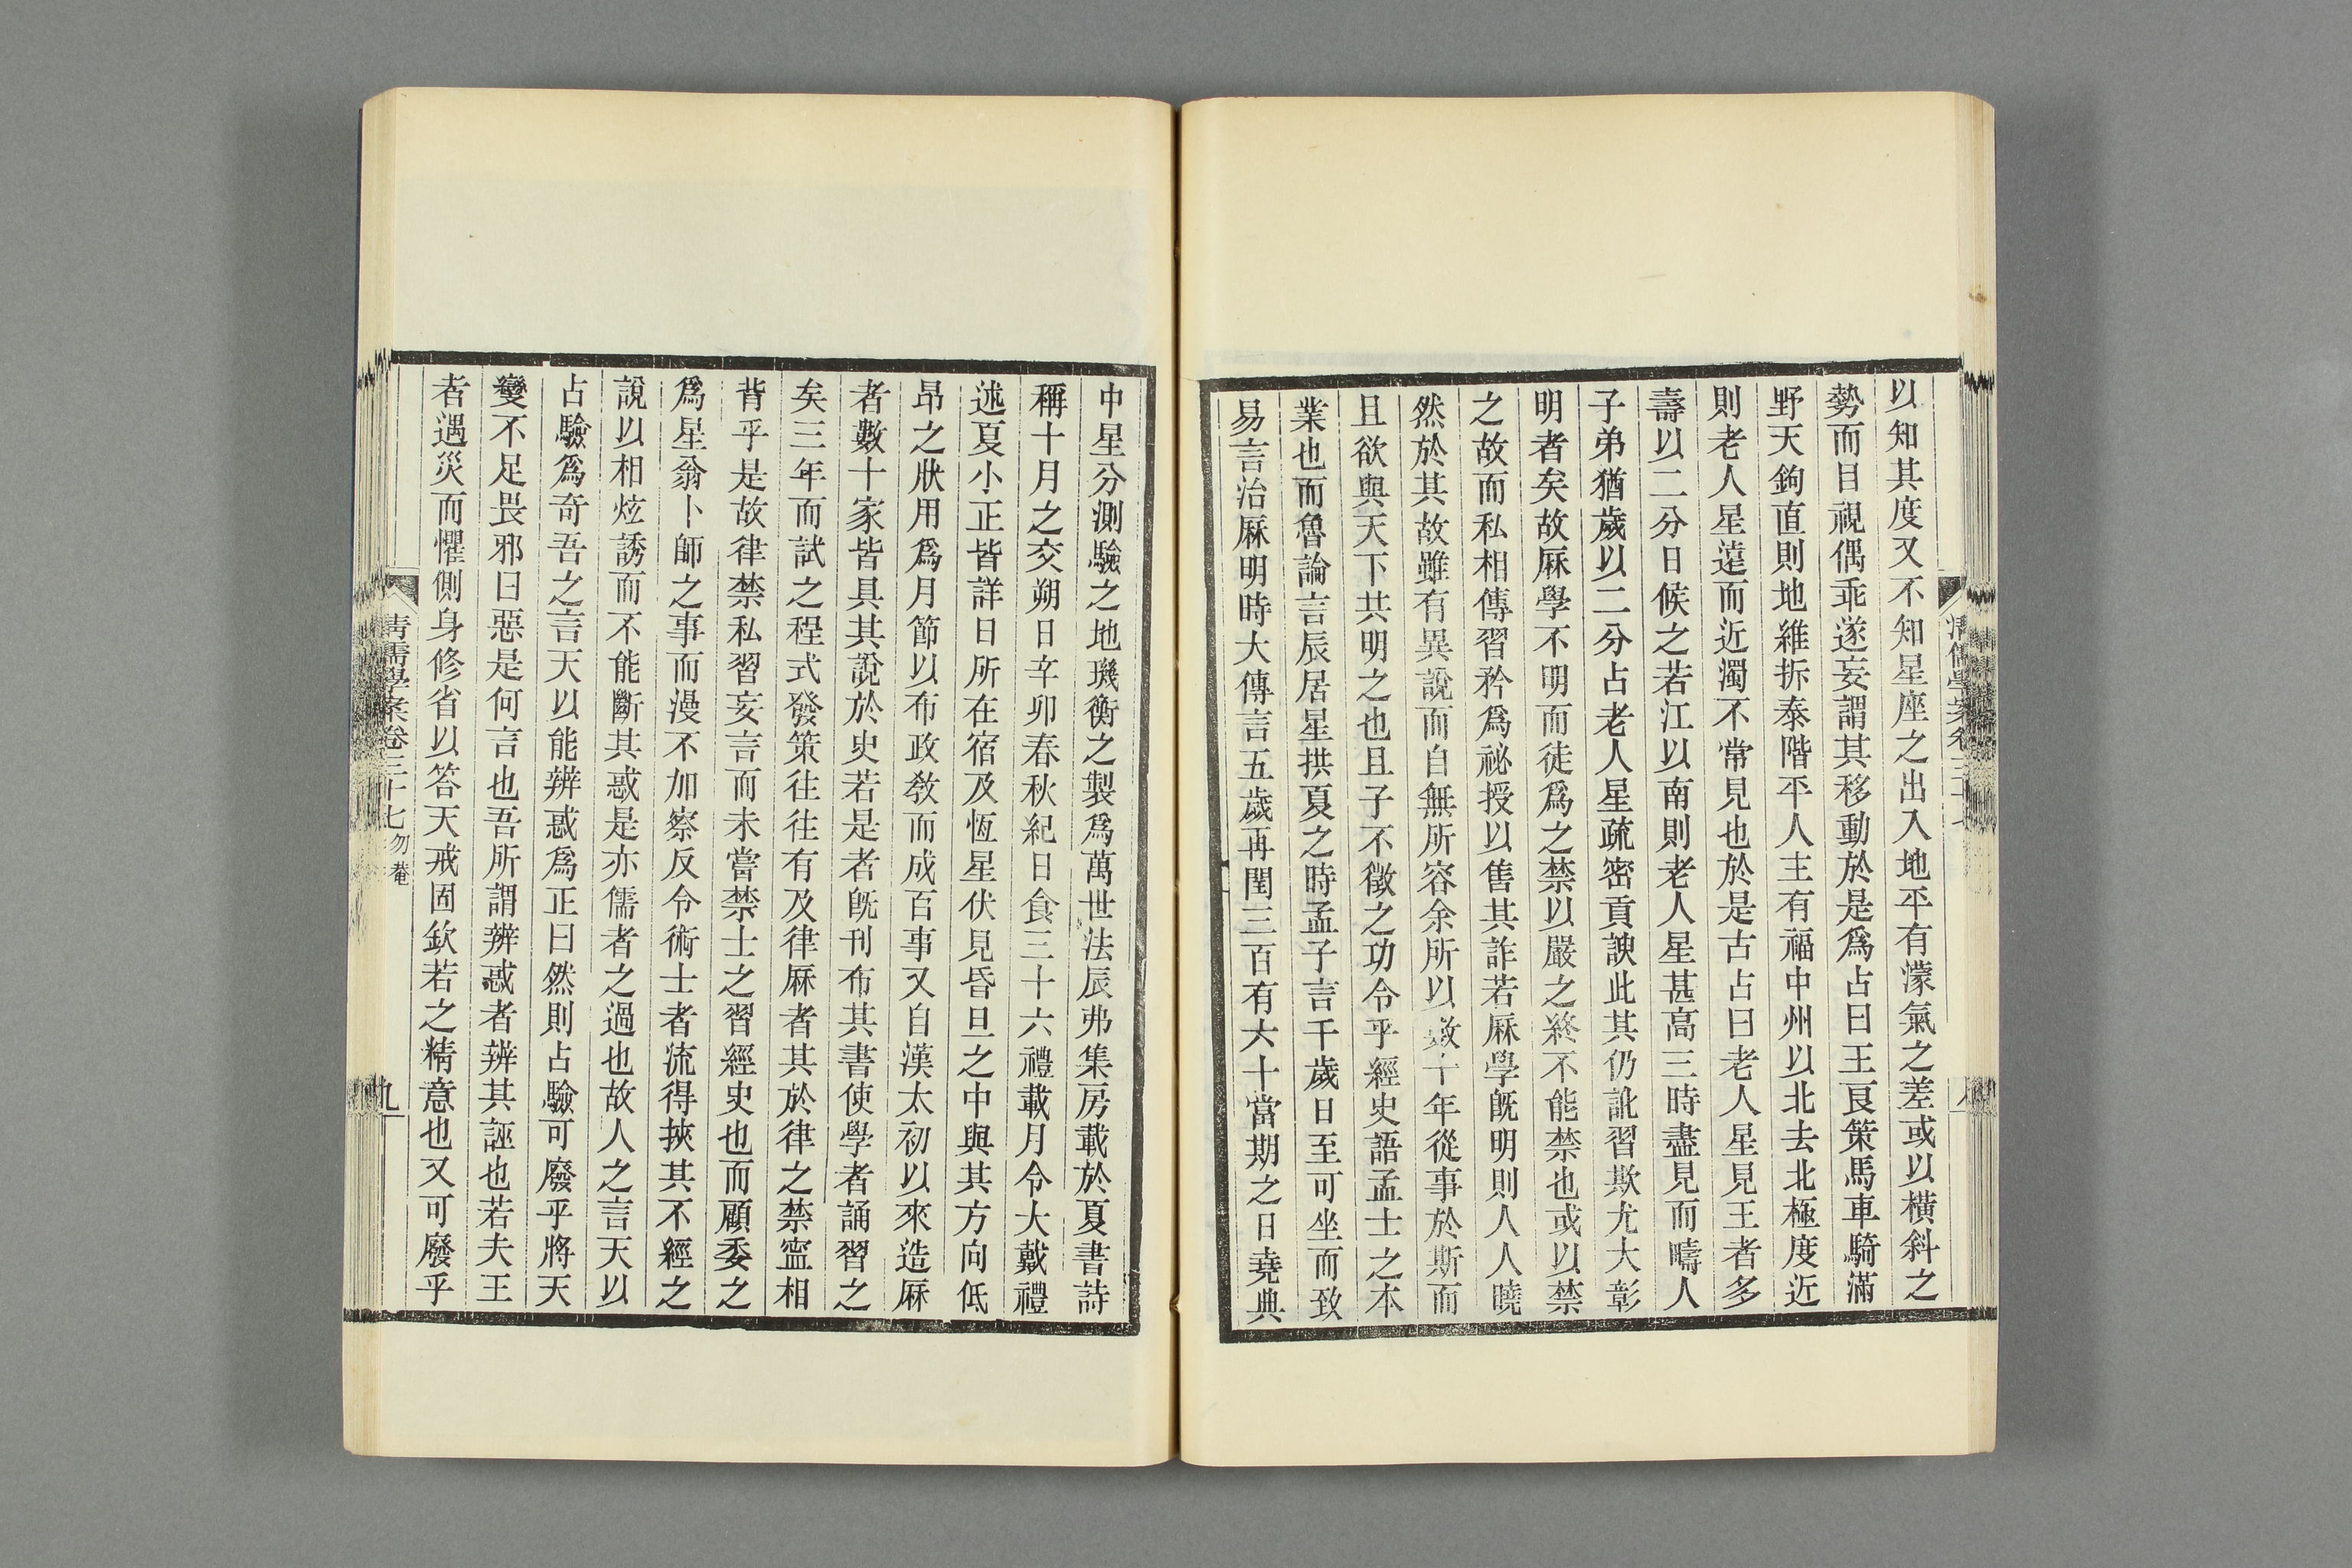 以知其度又不知星座之出入地平有濛氣之差或以橫斜之
勢而目視偶乖遂妄謂其移動於是爲占曰王良策馬車騎滿
野天鉤直則地維拆泰階平人主有福中州以北去北極度近
則老人星遠而近濁不常見也於是古占曰老人星見王者多
壽以二分日候之若江以南則老人星甚高三時盡見而疇人
子弟猶歲以二分占老人星疏密貢諛此其仍訛習欺尤大彰
明者矣故厤學不明而徒爲之禁以嚴之終不能禁也或以禁
之故而私相傳習矜爲祕授以售其詐若厤學旣明則人人曉
然於其故雖有異說而自無所容余所以數十年從事於斯而
且欲與天下共明之也且子不徵之功令乎經史語孟士之本
業也而魯論言辰居星拱夏之時孟子言千歲日至可坐而致
易言治厤明時大傳言五歲再閏三百有六十當期之日堯典
清儒學案卷三十七
八
中星分測驗之地璣衡之製爲萬世法辰弗集房載於夏書詩
稱十月之交朔日辛卯春秋紀日食三十六禮載月令大戴禮
述夏小正皆詳日所在宿及恆星伏見昏旦之中與其方向低
昂之狀用爲月節以布政敎而成百事又自漢太初以來造厤
者數十家皆具其說於史若是者旣刊布其書使學者誦習之
矣三年而試之程式發策往往有及律厤者其於律之禁寧相
背乎是故律禁私習妄言而未嘗禁士之習經史也而顧委之
爲星翁卜師之事而漫不加察反令術士者流得挾其不經之
說以相炫誘而不能斷其惑是亦儒者之過也故人之言天以
占驗爲奇吾之言天以能辨惑爲正曰然則占驗可廢乎將天
變不足畏邪曰惡是何言也吾所謂辨惑者辨其誣也若夫王
者遇災而懼側身修省以答天戒固欽若之精意也又可廢乎
清儒學案卷三十七 勿菴
九